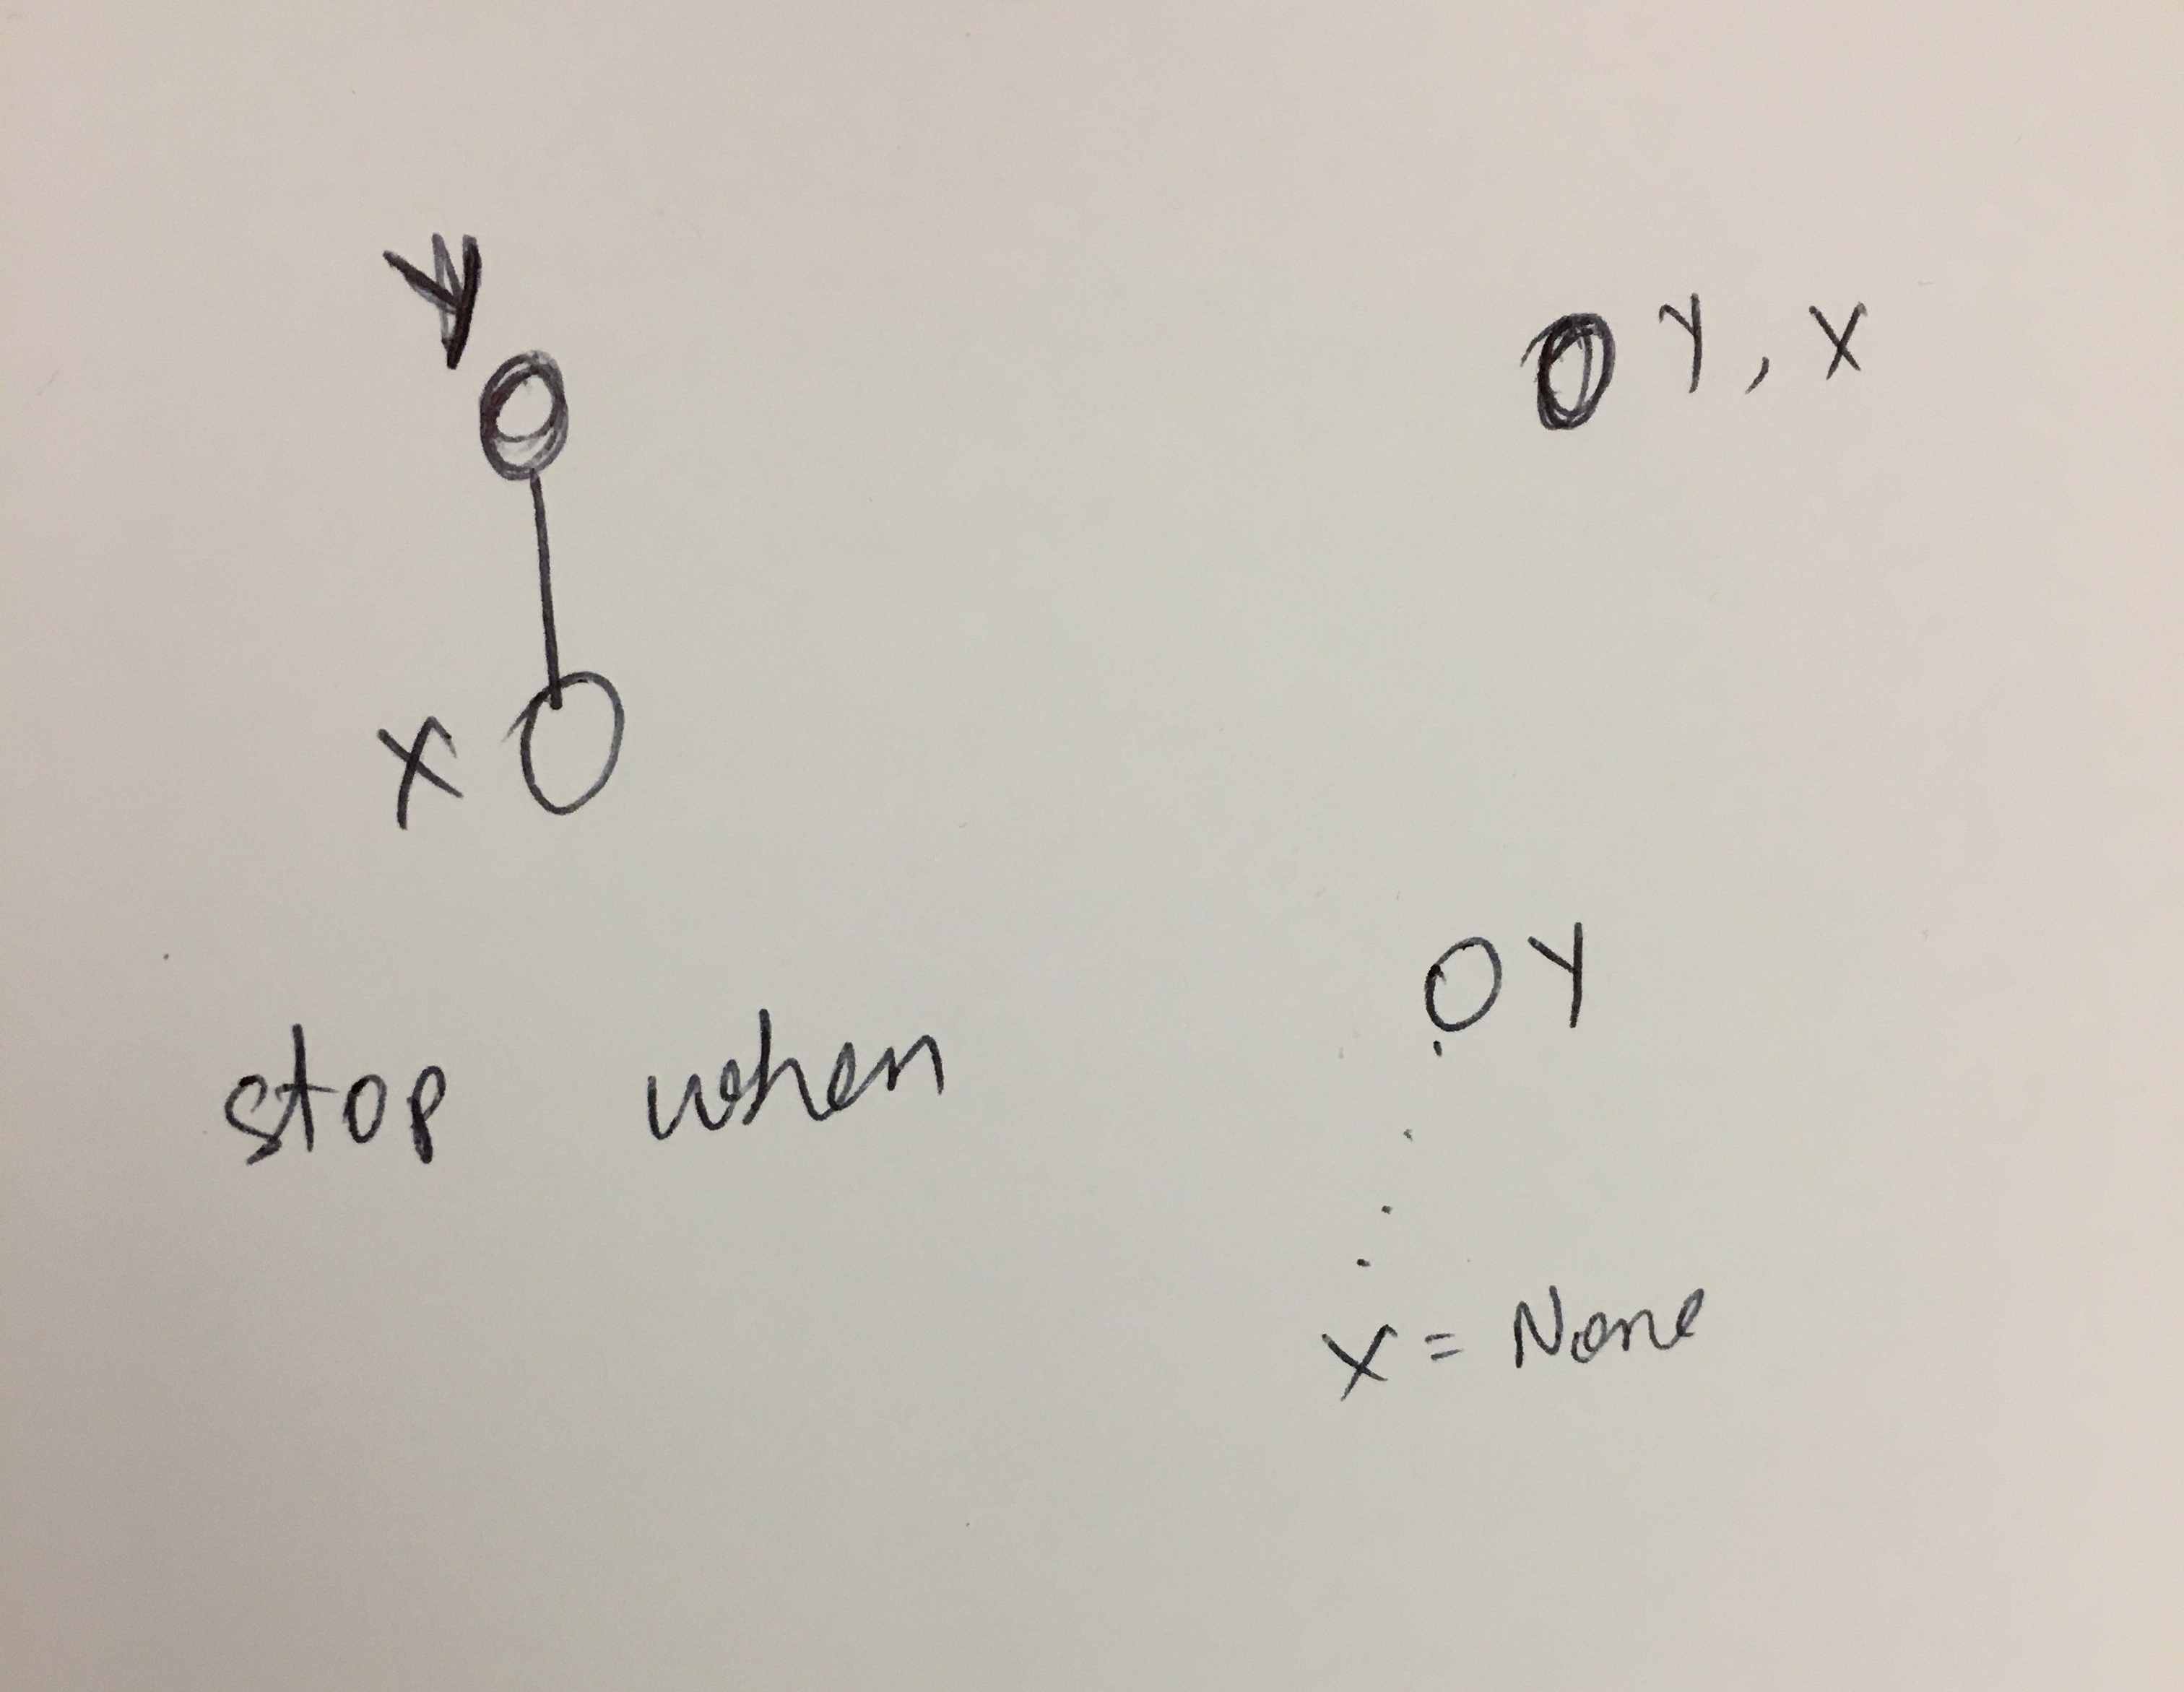 Y
Y, X
X
Y
stop when
X = None